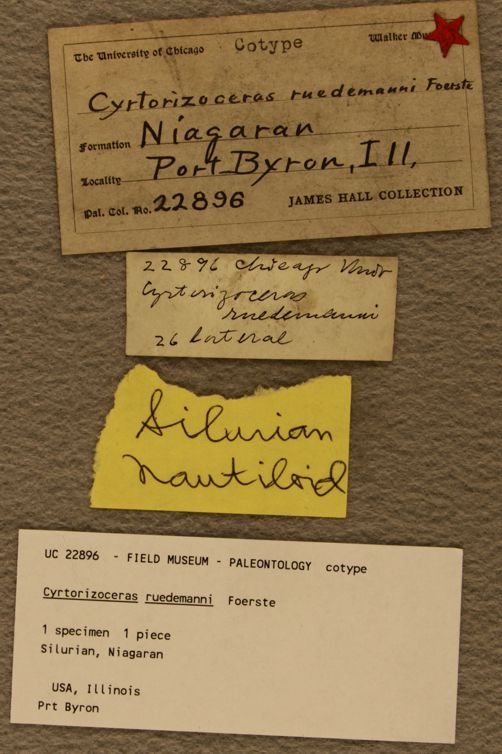 The University of Chicago Cotype Walker Mu
Cyrtorizoceras ruedemanni Foerste
Formation Niagaran
Locality Port Byron, Ill,
Pal. Col. No. 22896 JAMES HALL COLLECTION
22896 Chicago Univ
Cyrtorizoceras
ruedemanni
26 lateral
Silurian
nautiloid
UC 22896 - FIELD MUSEUM - PALEONTOLOGY cotype
Cyrtorizoceras ruedemanni Foerste
1 specimen 1 piece
Silurian, Niagaran
USA, Illinois
Prt Byron